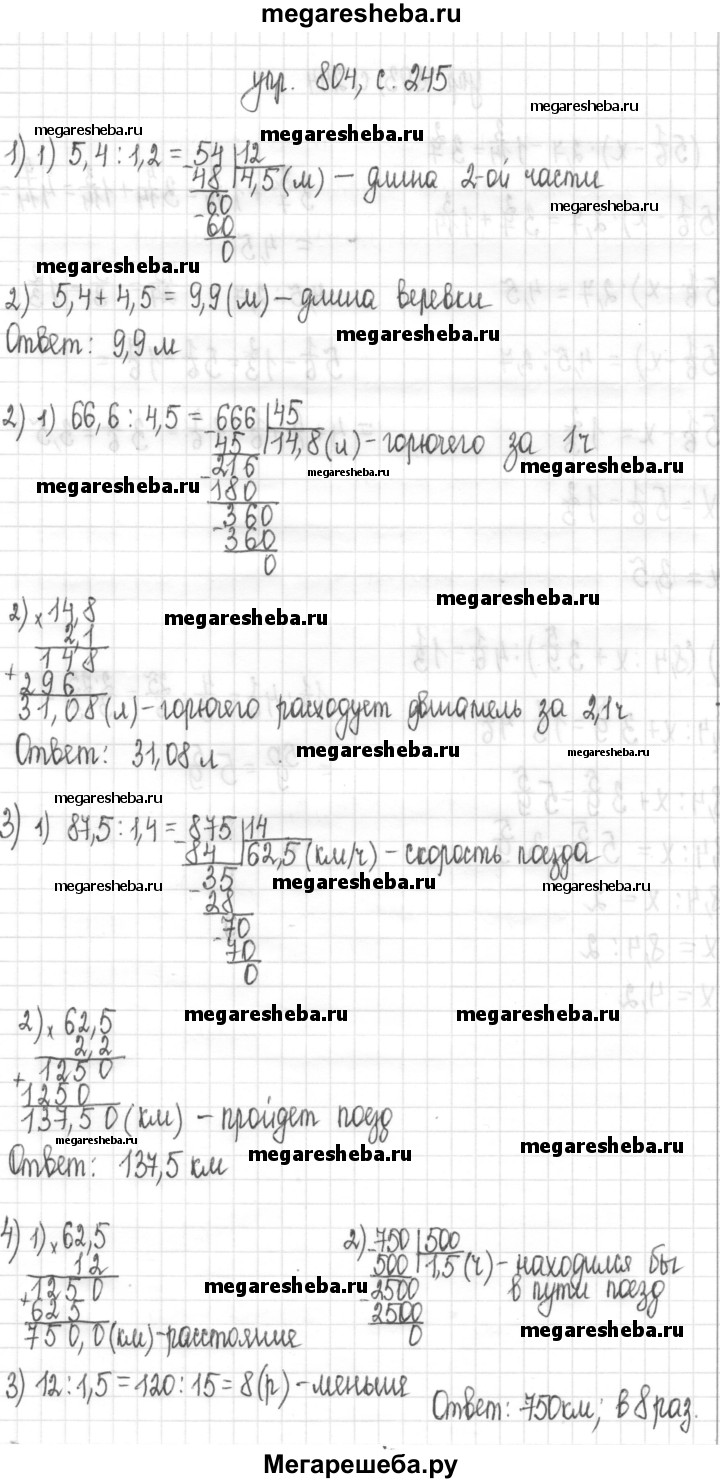 megaresheba.ru
упр. 804, с. 245
megaresheba.ru megaresheba.ru megaresheba.ru
1) 1) 5,4 : 1,2 = 54 | 12
- 48 | 4,5 (м) – длина 2-ой части
megaresheba.ru
60
- 60
0
megaresheba.ru
2) 5,4 + 4,5 = 9,9 (м) – длина веревки
megaresheba.ru
Ответ: 9,9 м
2) 1) 66,6 : 4,5 = 666 | 45
- 45 | 14,8 (л) – горючего за 1ч
megaresheba.ru megaresheba.ru
- 216
megaresheba.ru
180
- 360
360
0
megaresheba.ru
2) × 14,8
megaresheba.ru
2,1
+ 148
296
31,08 (л) – горючего расходует двигатель за 2,1ч
Ответ: 31,08 л
megaresheba.ru megaresheba.ru
megaresheba.ru
3) 1) 87,5 : 1,4 = 875 | 14
- 84 | 62,5 (км/ч) – скорость поезда
megaresheba.ru - 35 megaresheba.ru megaresheba.ru
28
- 70
70
0
megaresheba.ru megaresheba.ru
2) × 62,5
2,2
+ 1250
1250
137,50 (км) – пройдет поезд
megaresheba.ru megaresheba.ru megaresheba.ru
Ответ: 137,5 км
4) 1) × 62,5
12
+ 1250
625
750,0 (км) – расстояние
2) - 750 | 500
500 | 1,5 (ч) – находился бы
- 2500 в пути поезд
2500
0
megaresheba.ru
megaresheba.ru
3) 12 : 1,5 = 120 : 15 = 8 (р) – меньше
Ответ: 750км; в 8 раз.
Мегарешеба.ру